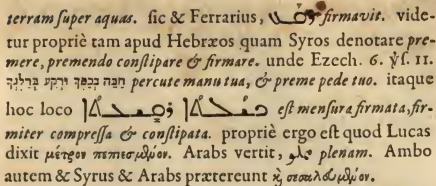 terram super aquas. sic & Ferrarius, ܪܩܥ firmavit. vide-
tur propriè tam apud Hebræos quam Syros denotare pre-
mere, premendo constipare & firmare. unde Ezech. 6. ỳſ. 11.
הכה בכפך ורקע ברגלך percute manu tua, & preme pede tuo. itaque
hoc loco ܟܝܠܬܐ ܪܩܝܥܬܐ est mensura firmata, fir-
miter compressa & constipata. propriè ergo est quod Lucas
dixit μέτρον πεπιεσμένον. Arabs vertit, ملو plenam. Ambo
autem & Syrus & Arabs prætereunt ϗ σεσαλευμένον.